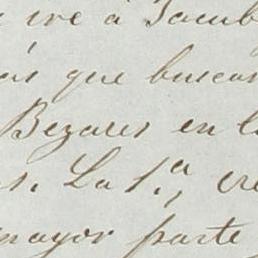 ire á Jacub
ás que buscar
Bezares en l
s. La 1.ª, cre
mayor parte